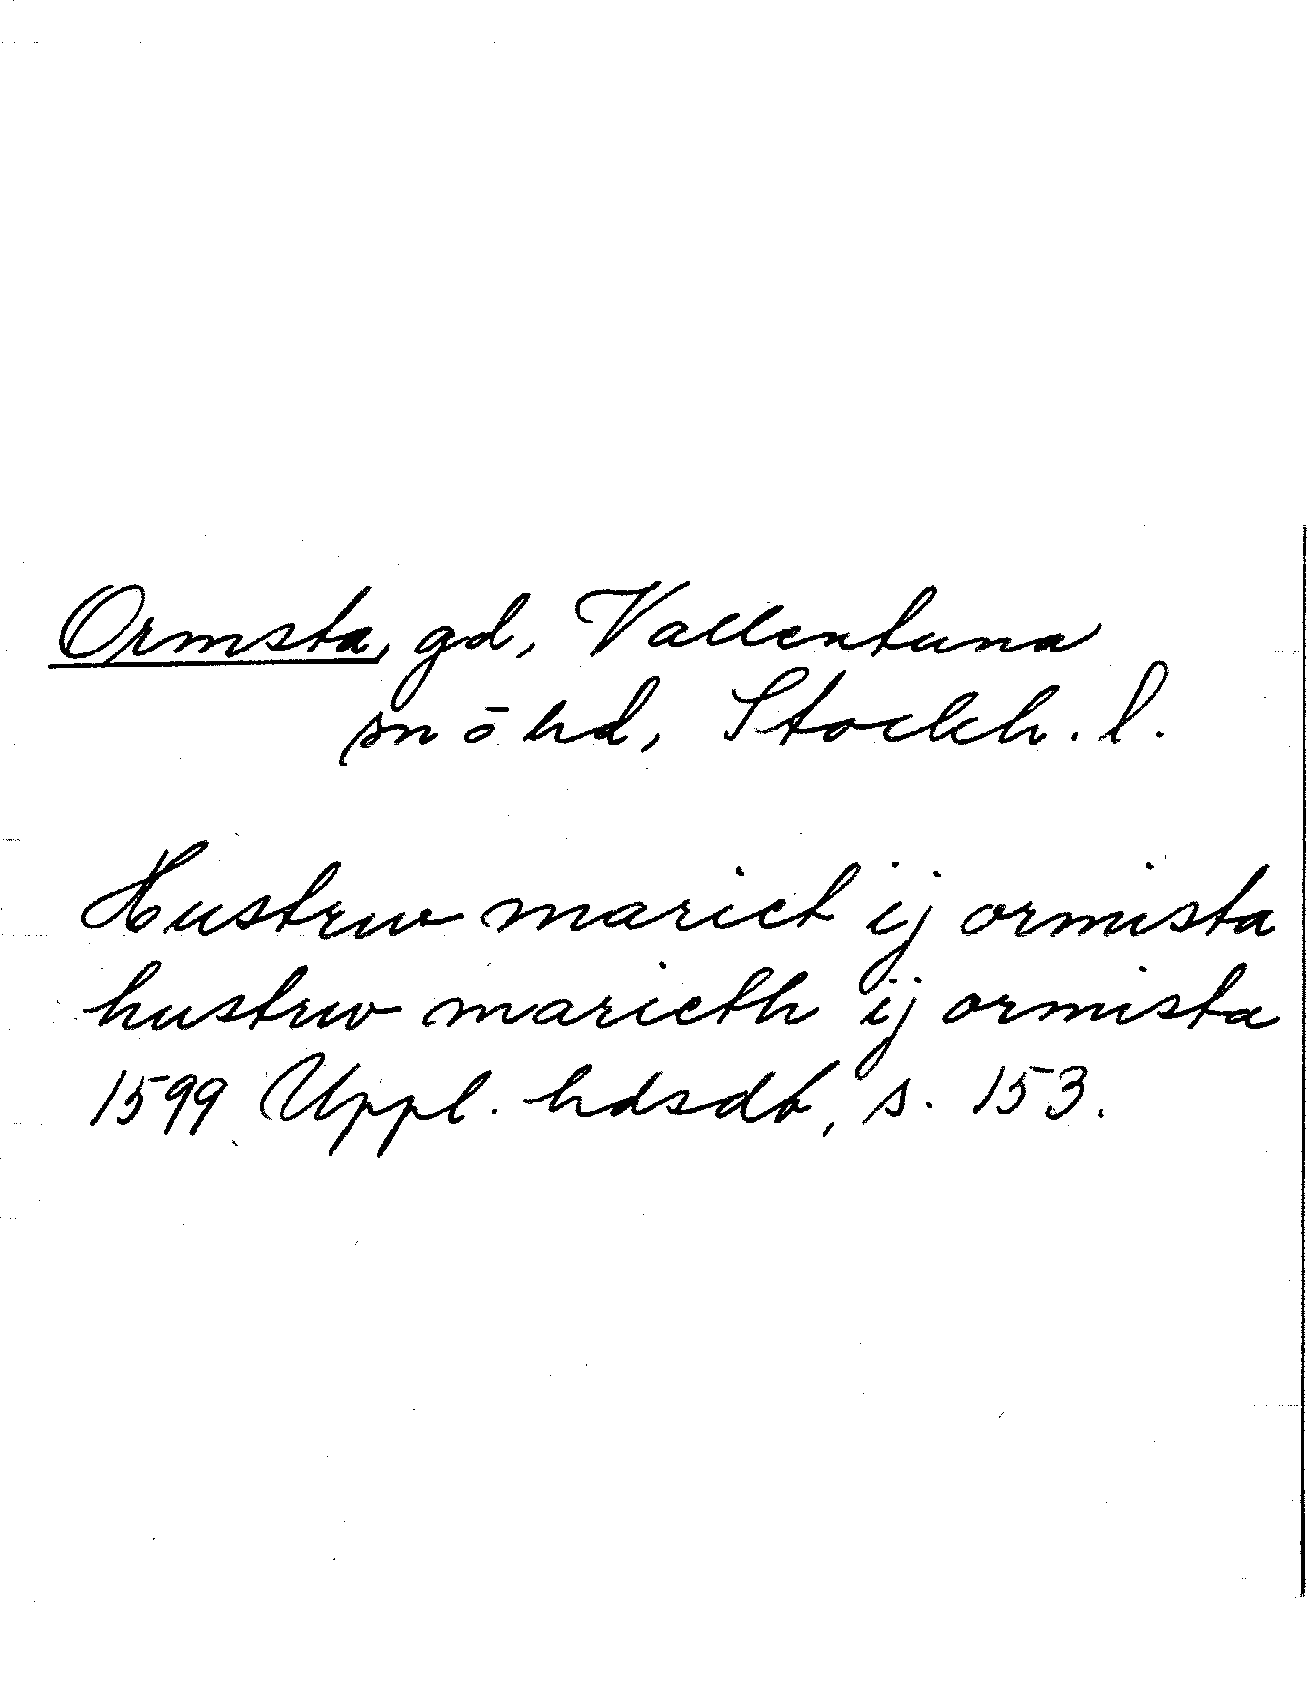 Ormsta, gd, Vallentuna
sn ō hd, Stockh. l.
Hustruw mariet ij ormista
hustrw marieth ij ormista
1599 Uppl. hdsdb, s. 153.